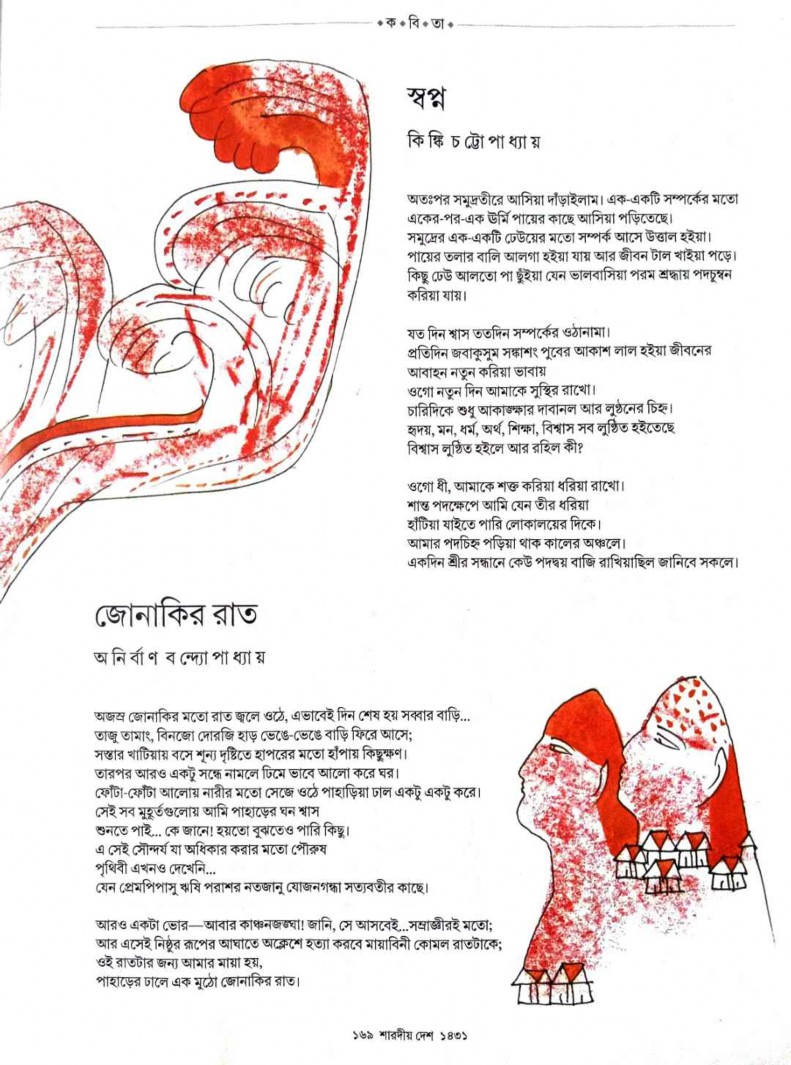 ◆ ক ◆ বি ◆ তা ◆
স্বপ্ন
কিঙ্কি চট্টোপাধ্যায়
অতঃপর সমুদ্রতীরে আসিয়া দাঁড়াইলাম। এক-একটি সম্পর্কের মতো
একের-পর-এক ঊর্মি পায়ের কাছে আসিয়া পড়িতেছে।
সমুদ্রের এক-একটি ঢেউয়ের মতো সম্পর্ক আসে উত্তাল হইয়া।
পায়ের তলার বালি আলগা হইয়া যায় আর জীবন টাল খাইয়া পড়ে।
কিছু ঢেউ আলতো পা ছুঁইয়া যেন ভালবাসিয়া পরম শ্রদ্ধায় পদচুম্বন
করিয়া যায়।
যত দিন শ্বাস ততদিন সম্পর্কের ওঠানামা।
প্রতিদিন জবাকুসুম সঙ্কাশং পুবের আকাশ লাল হইয়া জীবনের
আবাহন নতুন করিয়া ভাবায়
ওগো নতুন দিন আমাকে সুস্থির রাখো।
চারিদিকে শুধু আকাঙ্ক্ষার দাবানল আর লুণ্ঠনের চিহ্ন।
হৃদয়, মন, ধর্ম, অর্থ, শিক্ষা, বিশ্বাস সব লুণ্ঠিত হইতেছে
বিশ্বাস লুণ্ঠিত হইলে আর রহিল কী?
ওগো ধী, আমাকে শক্ত করিয়া ধরিয়া রাখো।
শান্ত পদক্ষেপে আমি যেন তীর ধরিয়া
হাঁটিয়া যাইতে পারি লোকালয়ের দিকে।
আমার পদচিহ্ন পড়িয়া থাক কালের অঞ্চলে।
একদিন শ্রীর সন্ধানে কেউ পদদ্বয় বাজি রাখিয়াছিল জানিবে সকলে।
জোনাকির রাত
অনির্বাণ বন্দ্যোপাধ্যায়
অজস্র জোনাকির মতো রাত জ্বলে ওঠে, এভাবেই দিন শেষ হয় সব্বার বাড়ি...
তাজু তামাং, বিনজো দোরজি হাড় ভেঙে-ভেঙে বাড়ি ফিরে আসে;
সস্তার খাটিয়ায় বসে শূন্য দৃষ্টিতে হাপরের মতো হাঁপায় কিছুক্ষণ।
তারপর আরও একটু সন্ধে নামলে ঢিমে ভাবে আলো করে ঘর।
ফোঁটা-ফোঁটা আলোয় নারীর মতো সেজে ওঠে পাহাড়িয়া ঢাল একটু একটু করে।
সেই সব মুহূর্তগুলোয় আমি পাহাড়ের ঘন শ্বাস
শুনতে পাই... কে জানে! হয়তো বুঝতেও পারি কিছু।
এ সেই সৌন্দর্য যা অধিকার করার মতো পৌরুষ
পৃথিবী এখনও দেখেনি...
যেন প্রেমপিপাসু ঋষি পরাশর নতজানু যোজনগন্ধা সত্যবতীর কাছে।
আরও একটা ভোর—আবার কাঞ্চনজঙ্ঘা! জানি, সে আসবেই...সম্রাজ্ঞীরই মতো;
আর এসেই নিষ্ঠুর রূপের আঘাতে অক্লেশে হত্যা করবে মায়াবিনী কোমল রাতটাকে;
ওই রাতটার জন্য আমার মায়া হয়,
পাহাড়ের ঢালে এক মুঠো জোনাকির রাত।
১৬৯ শারদীয় দেশ ১৪৩১